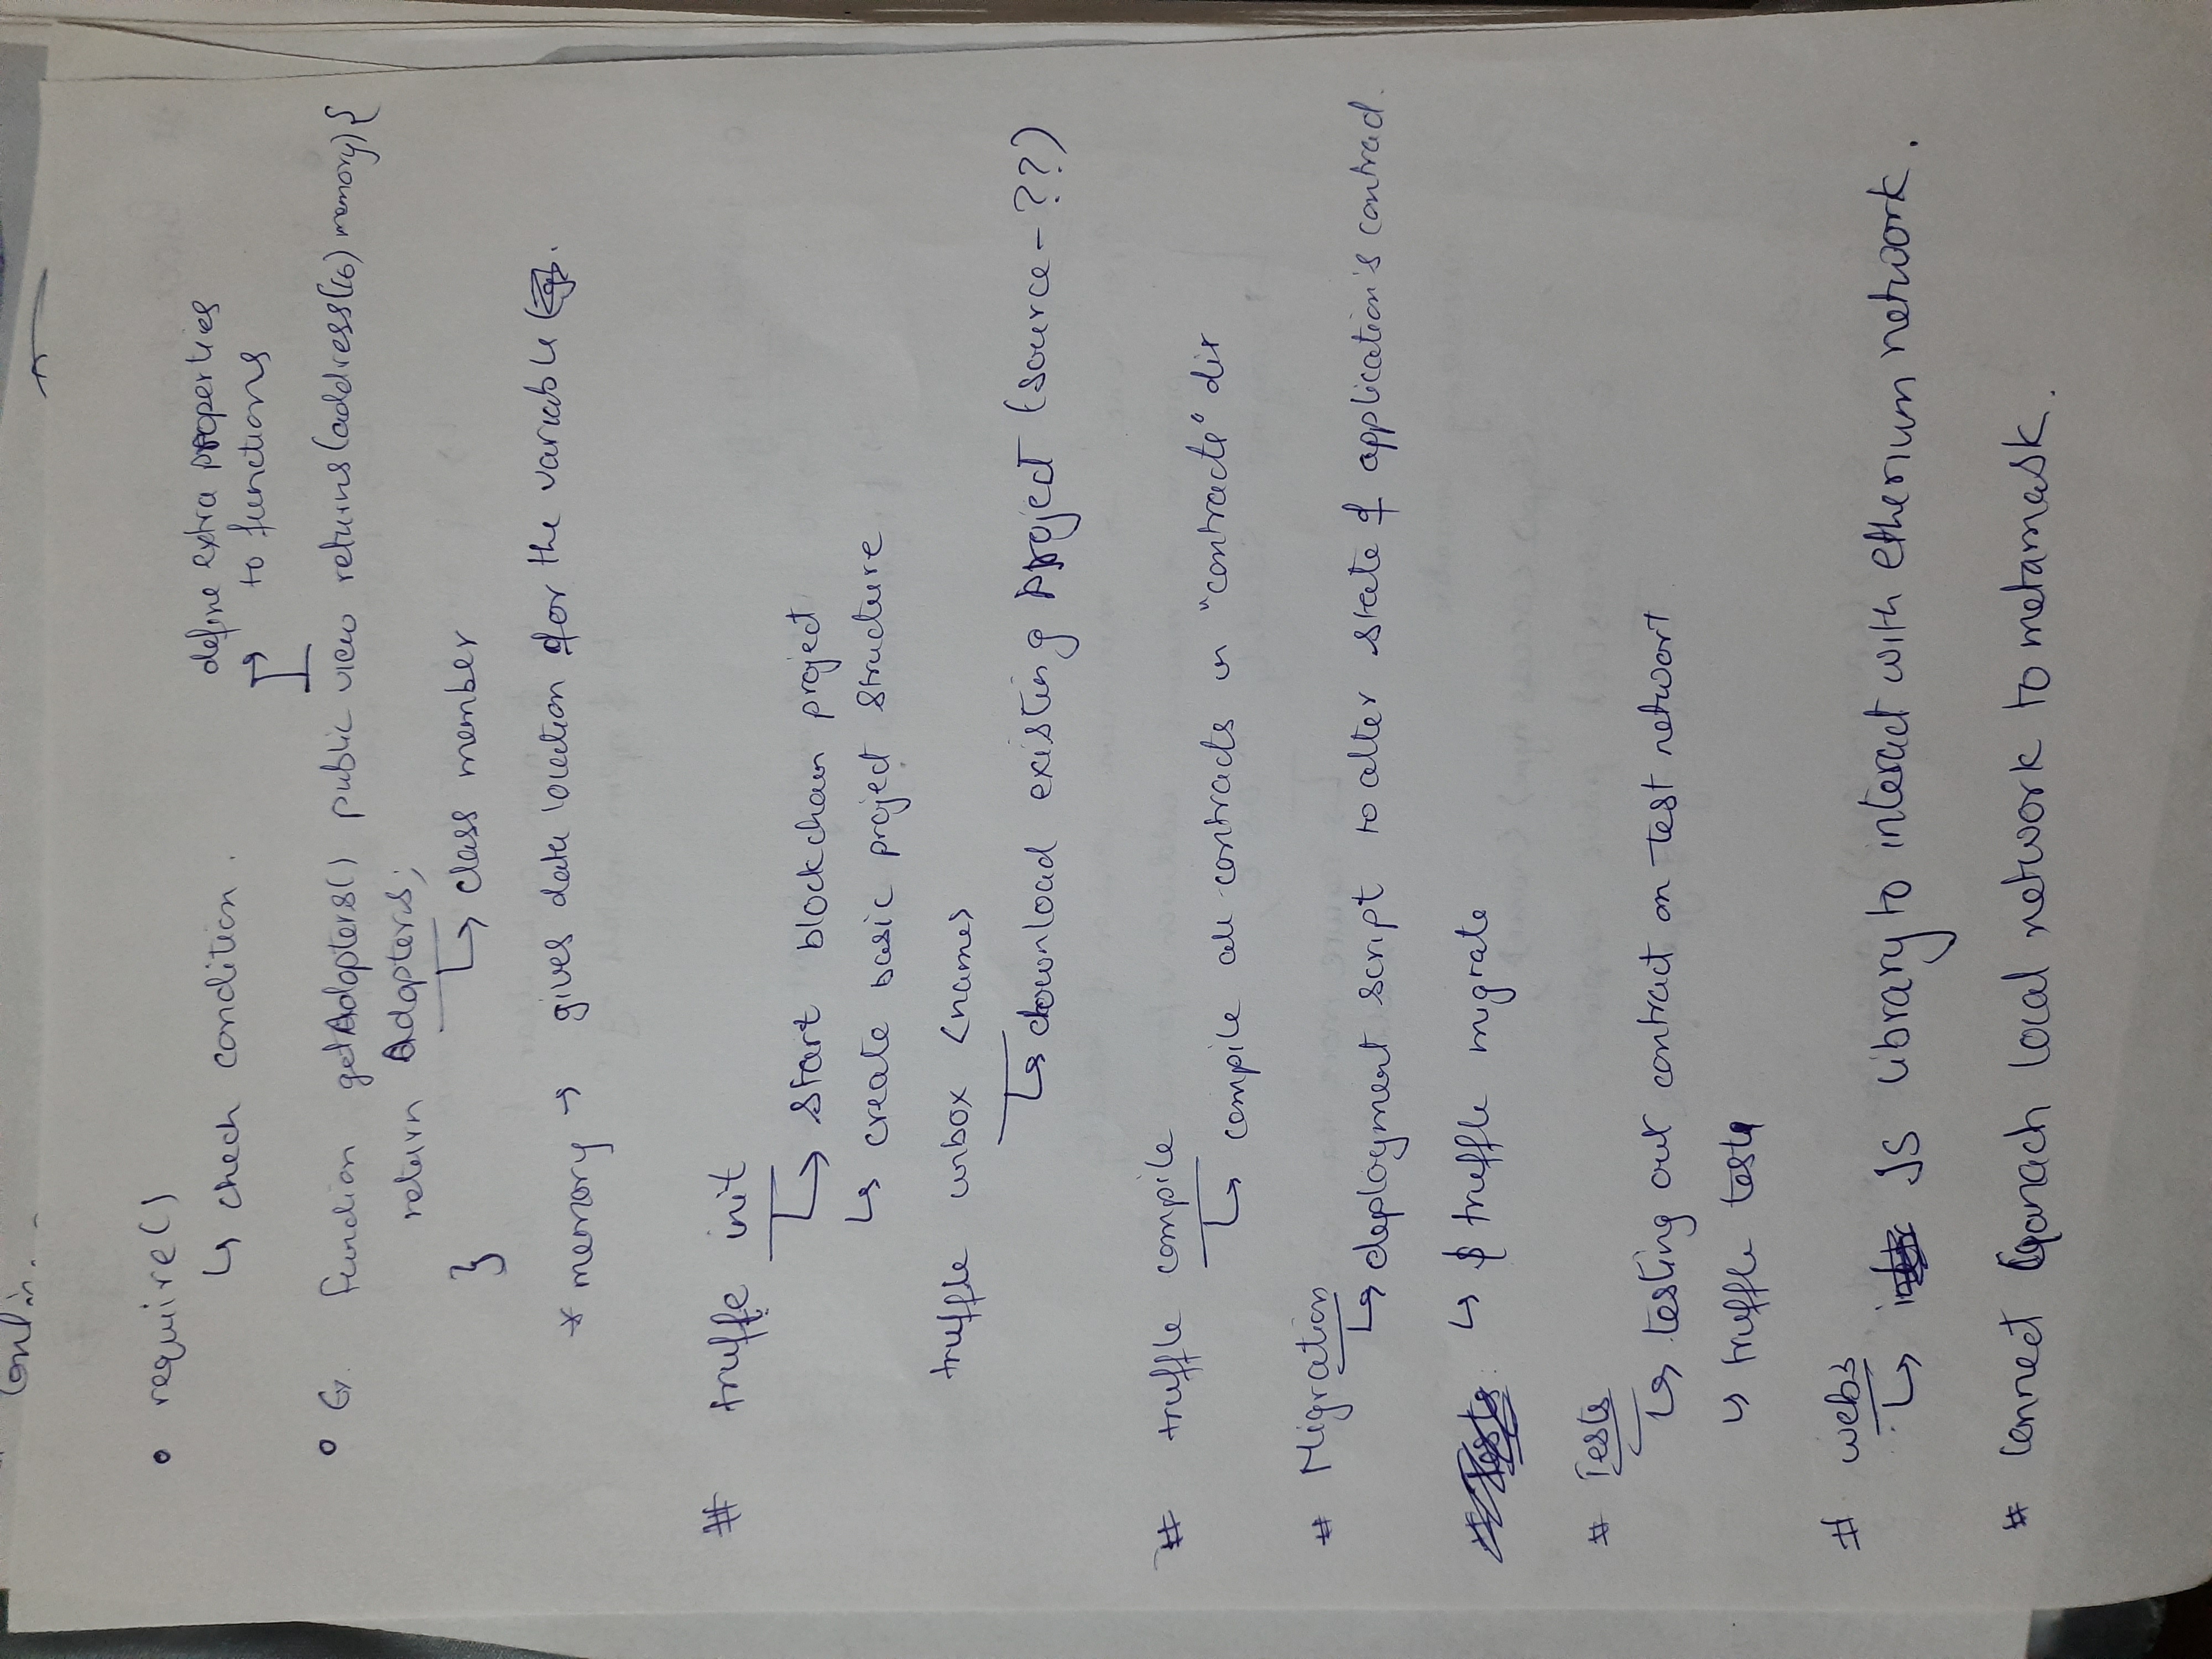 Contin. - -
• require()
↳ check condition.
define extra properties
to functions
• G. function getAdopters() public view returns (address(16) memory) {
return Adopters;
↳ class member
}
* memory → gives data location for the variable
# truffe init
↳ start blockchain project
↳ create basic project structure
truffle unbox <name>
↳ download existing project (source - ??)
# truffle compile
↳ compile all contracts in "contracts" dir
# Migration
↳ deployment script to alter state of application's contract.
↳ $ truffle migrate
# Tests
↳ testing out contract on test network
↳ truffle test
# web3
↳ JS library to interact with etherium network.
# connect Ganach local network to metamask.